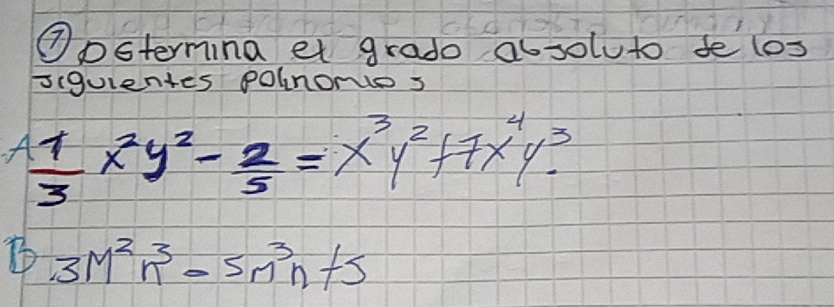 ⑦ DEtermina el grado absoluto de los
siguientes polinomios
A 1/3 x²y² - 2/5 = x³y² + 7x⁴y³.
B 3M²n³ - 5m³n + 5